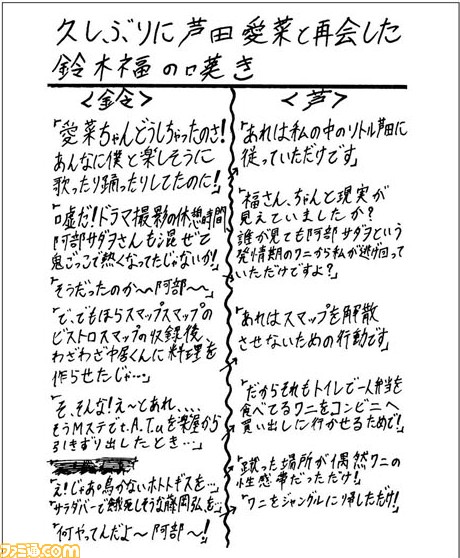 久しぶりに芦田愛菜と再会した
鈴木福の嘆き
<鈴>
「愛菜ちゃんどうしちゃったのさ!
あんなに僕と楽しそうに
歌ったり踊ったりしてたのに!」
「嘘だ!ドラマ撮影の休憩時間
阿部サダヲさんも混ぜて
鬼ごっこで熱くなってたじゃないか!」
「そうだったのか〜阿部〜」
「で、でもほらスマップスマップの
ビストロスマップの収録後、
わざわざ中居くんに料理を
作らせたじゃ…」
「そ、そんな!え〜とあれ、、、、
そうMステでt.A.T.uを楽屋から
引きずり出したとき…」
「え!じゃあ。鳥かないホトトギスを…」
「サラダバーで餓死しそうな藤岡弘、を…」
「何やってんだよ〜阿部〜!」
<芦>
「あれは私の中のリトル芦田に
従っていただけです」
「福さん、ちゃんと現実が
見えていましたか?
誰が見ても阿部サダヲという
発情期のワニから私が逃げ回って
いただけですよ?」
「あれはスマップを解散
させないための行動です」
「だからそれもトイレで一人弁当を
食べてるワニをコンビニへ
買い出しに行かせるためで!」
「蹴った場所が偶然ワニの
性感帯だっただけ!」
「ワニをジャングルに帰しただけ!」
ファミ通.com